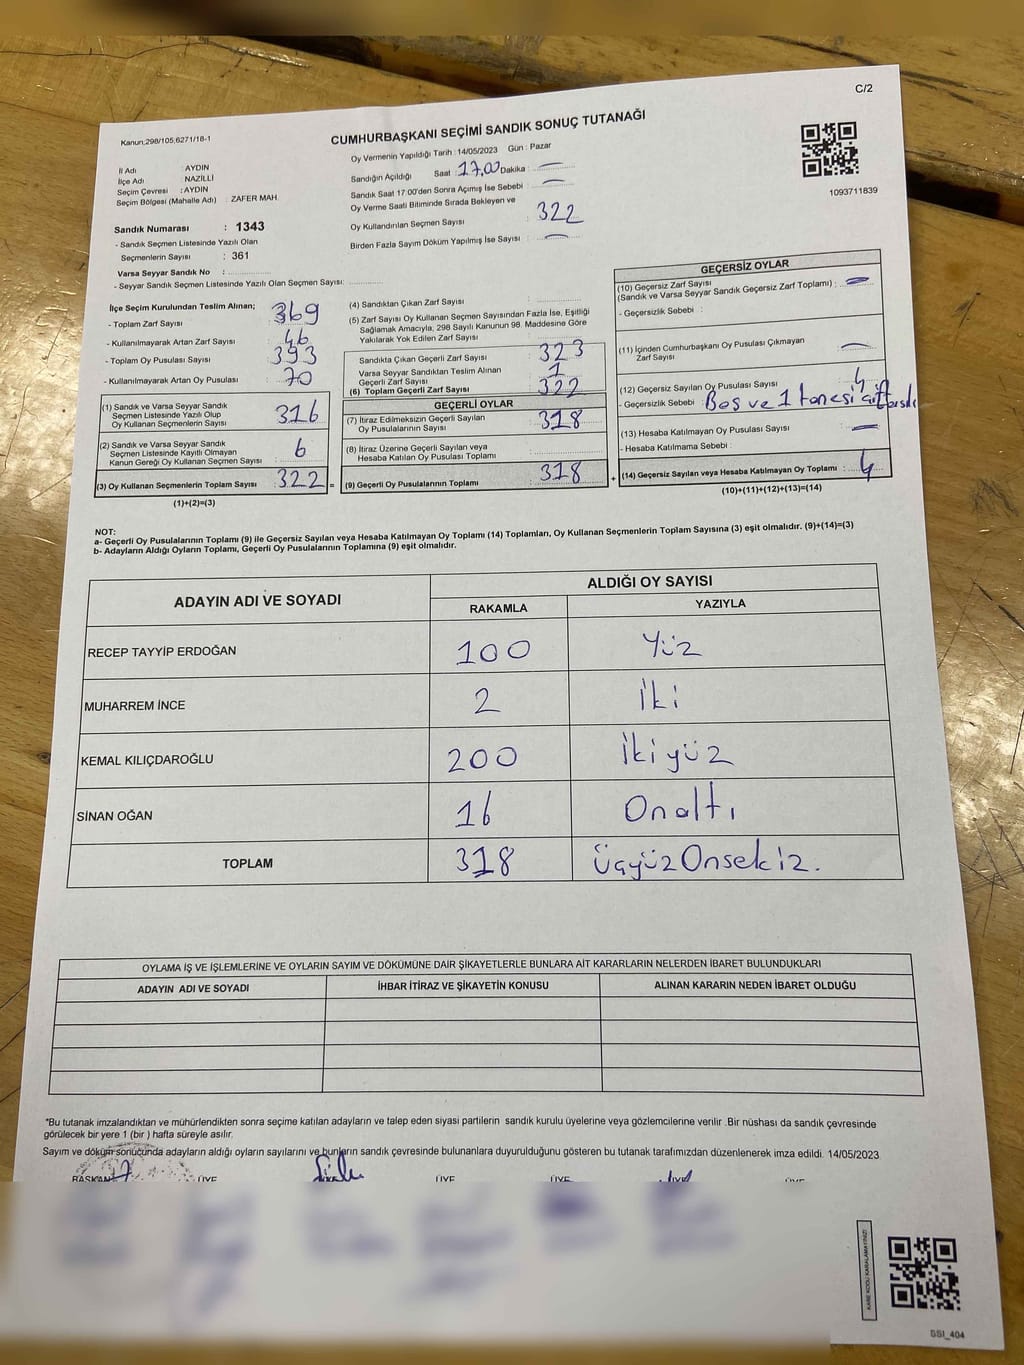 C/2
Kanun;298/105,6271/18-1
CUMHURBAŞKANI SEÇİMİ SANDIK SONUÇ TUTANAĞI
1093711839
İl Adı : AYDIN
İlçe Adı NAZİLLİ
Seçim Çevresi : AYDIN
Seçim Bölgesi (Mahalle Adı) : ZAFER MAH.
Sandık Numarası : 1343
- Sandık Seçmen Listesinde Yazılı Olan
Seçmenlerin Sayısı : 361
Varsa Seyyar Sandık No :
- Seyyar Sandık Seçmen Listesinde Yazılı Olan Seçmen Sayısı:
Oy Vermenin Yapıldığı Tarih : 14/05/2023 Gün : Pazar
Sandığın Açıldığı Saat : 17,00 Dakika : —
Sandık Saat 17.00'den Sonra Açımış İse Sebebi : —
Oy Verme Saati Bitiminde Sırada Bekleyen ve
Oy Kullandırılan Seçmen Sayısı : 322
Birden Fazla Sayım Döküm Yapılmış İse Sayısı : —
İlçe Seçim Kurulundan Teslim Alınan;
- Toplam Zarf Sayısı : 369
- Kullanılmayarak Artan Zarf Sayısı : 46
- Toplam Oy Pusulası Sayısı : 393
- Kullanılmayarak Artan Oy Pusulası : 70
(1) Sandık ve Varsa Seyyar Sandık
Seçmen Listesinde Yazılı Olup
Oy Kullanan Seçmenlerin Sayısı : 316
(2) Sandık ve Varsa Seyyar Sandık
Seçmen Listesinde Kayıtlı Olmayan
Kanun Gereği Oy Kullanan Seçmen Sayısı : 6
(3) Oy Kullanan Seçmenlerin Toplam Sayısı : 322 =
(1)+(2)=(3)
(4) Sandıktan Çıkan Zarf Sayısı :
(5) Zarf Sayısı Oy Kullanan Seçmen Sayısından Fazla İse, Eşitliği
Sağlamak Amacıyla, 298 Sayılı Kanunun 98. Maddesine Göre
Yakılarak Yok Edilen Zarf Sayısı :
Sandıkta Çıkan Geçerli Zarf Sayısı : 323
Varsa Seyyar Sandıktan Teslim Alınan
Geçerli Zarf Sayısı : 1
(6) Toplam Geçerli Zarf Sayısı : 322
GEÇERLİ OYLAR
(7) İtiraz Edilmeksizin Geçerli Sayılan
Oy Pusulalarının Sayısı : 318
(8) İtiraz Üzerine Geçerli Sayılan veya
Hesaba Katılan Oy Pusulası Toplamı :
(9) Geçerli Oy Pusulalarının Toplamı : 318 +
GEÇERSİZ OYLAR
(10) Geçersiz Zarf Sayısı
(Sandık ve Varsa Seyyar Sandık Geçersiz Zarf Toplamı) : —
- Geçersizlik Sebebi :
(11) İçinden Cumhurbaşkanı Oy Pusulası Çıkmayan
Zarf Sayısı : —
(12) Geçersiz Sayılan Oy Pusulası Sayısı : 4
- Geçersizlik Sebebi : Boş ve 1 tanesi çift
(13) Hesaba Katılmayan Oy Pusulası Sayısı : —
- Hesaba Katılmama Sebebi :
(14) Geçersiz Sayılan veya Hesaba Katılmayan Oy Toplamı : 4
(10)+(11)+(12)+(13)=(14)
NOT:
a- Geçerli Oy Pusulalarının Toplamı (9) ile Geçersiz Sayılan veya Hesaba Katılmayan Oy Toplamı (14) Toplamları, Oy Kullanan Seçmenlerin Toplam Sayısına (3) eşit olmalıdır. (9)+(14)=(3)
b- Adayların Aldığı Oyların Toplamı, Geçerli Oy Pusulalarının Toplamına (9) eşit olmalıdır.
ADAYIN ADI VE SOYADI
ALDIĞI OY SAYISI
RAKAMLA YAZIYLA
RECEP TAYYİP ERDOĞAN 100 Yüz
MUHARREM İNCE 2 İki
KEMAL KILIÇDAROĞLU 200 İkiyüz
SİNAN OĞAN 16 Onaltı
TOPLAM 318 ÜçyüzOnsekiz.
OYLAMA İŞ VE İŞLEMLERİNE VE OYLARIN SAYIM VE DÖKÜMÜNE DAİR ŞİKAYETLERLE BUNLARA AİT KARARLARIN NELERDEN İBARET BULUNDUKLARI
ADAYIN ADI VE SOYADI İHBAR İTİRAZ VE ŞİKAYETİN KONUSU ALINAN KARARIN NEDEN İBARET OLDUĞU
*Bu tutanak imzalandıktan ve mühürlendikten sonra seçime katılan adayların ve talep eden siyasi partilerin sandık kurulu üyelerine veya gözlemcilerine verilir .Bir nüshası da sandık çevresinde
görülecek bir yere 1 (bir ) hafta süreyle asılır.
Sayım ve döküm sonucunda adayların aldığı oyların sayılarını ve bunların sandık çevresinde bulunanlara duyurulduğunu gösteren bu tutanak tarafımızdan düzenlenerek imza edildi. 14/05/2023
BAŞKAN ÜYE ÜYE ÜYE ÜYE
KARE KODU KARALAMAYINIZ!
SSI_404